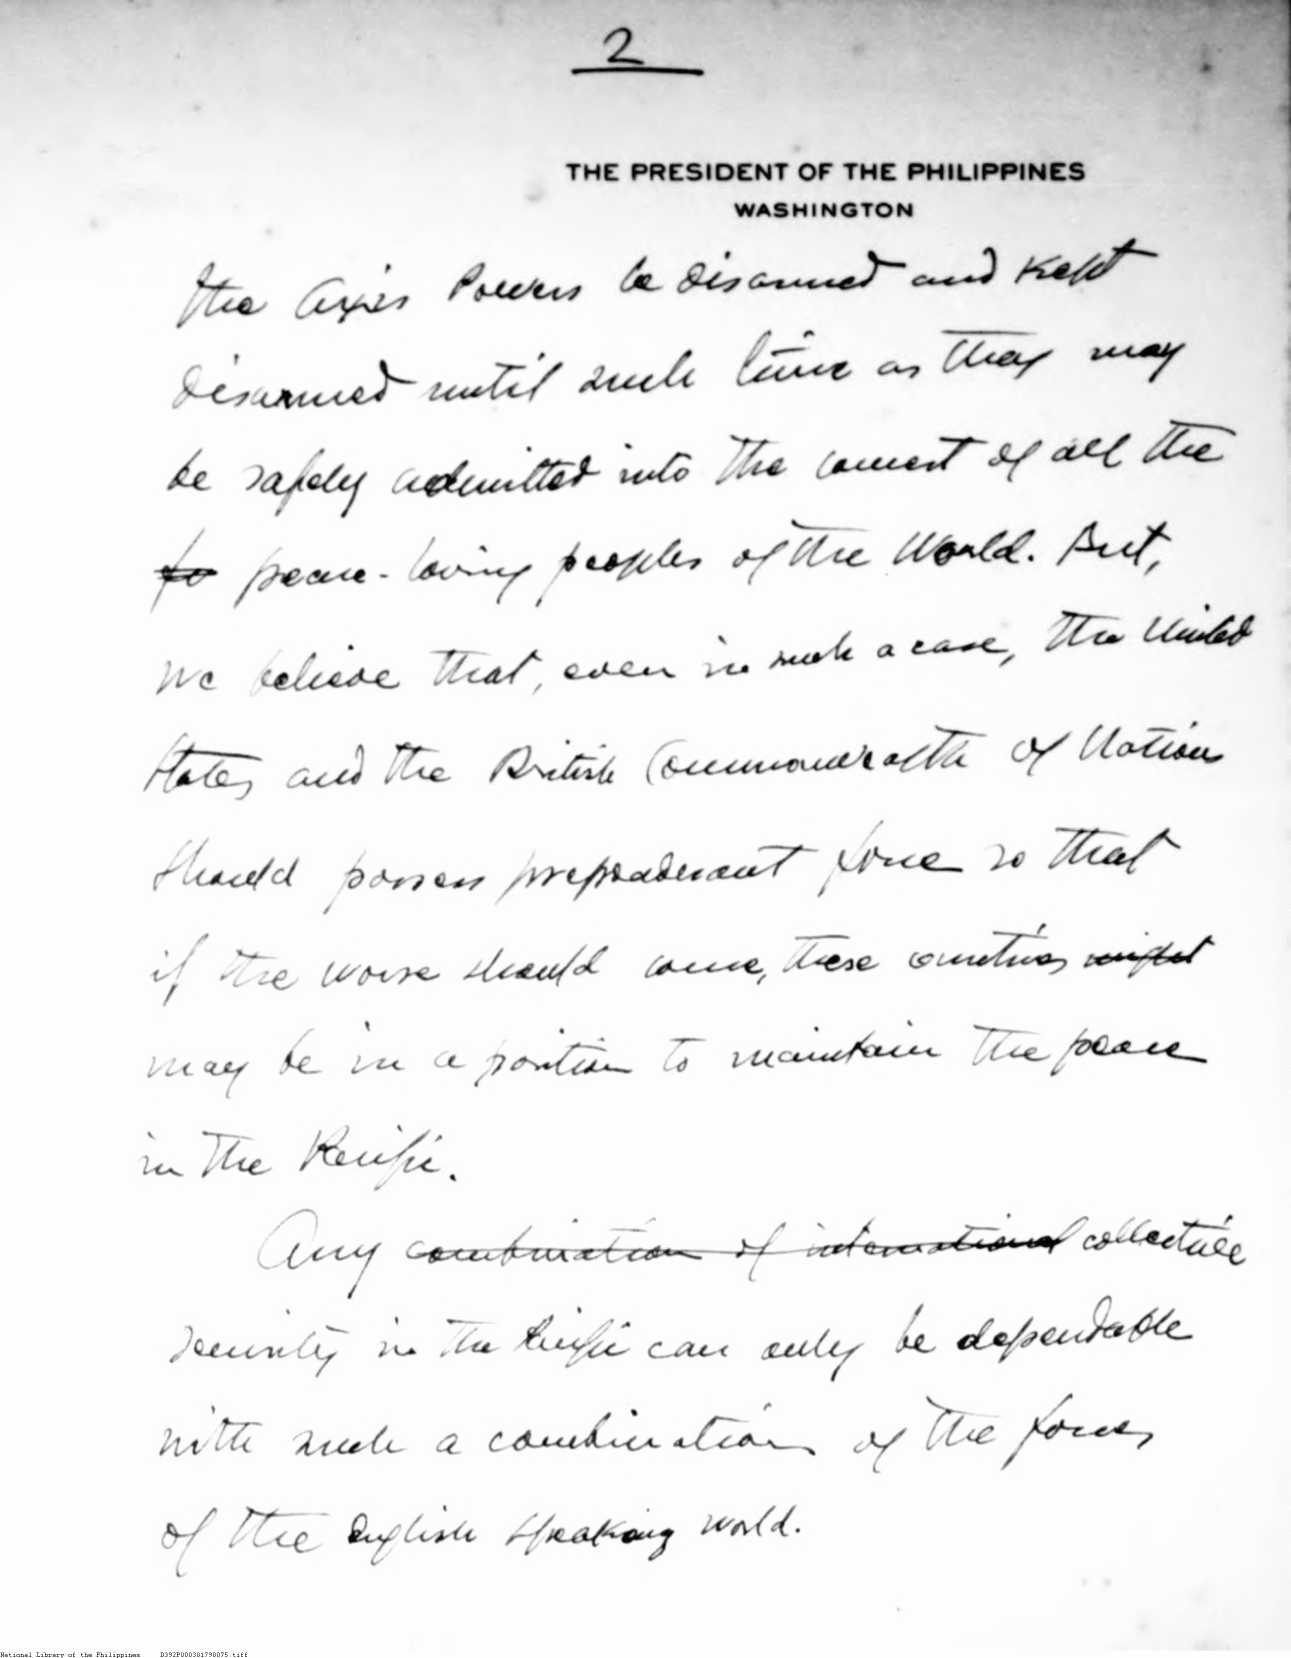 2
THE PRESIDENT OF THE PHILIPPINES
WASHINGTON
the Axis Powers be disarmed and kept
disarmed until such time as they may
be safely admitted into the concert of all the
~~fo~~ peace-loving peoples of the World. But,
we believe that, even in such a case, the United
States and the British Commonwealth of Nations
should possess preponderant force so that
if the worse should come, these countries ~~might~~
may be in a position to maintain the peace
in the Pacific.
Any ~~combination of international~~ collective
security in the Pacific can only be dependable
with such a combination of the forces
of the English speaking world.
National Library of the Philippines D392P000381798075.tiff